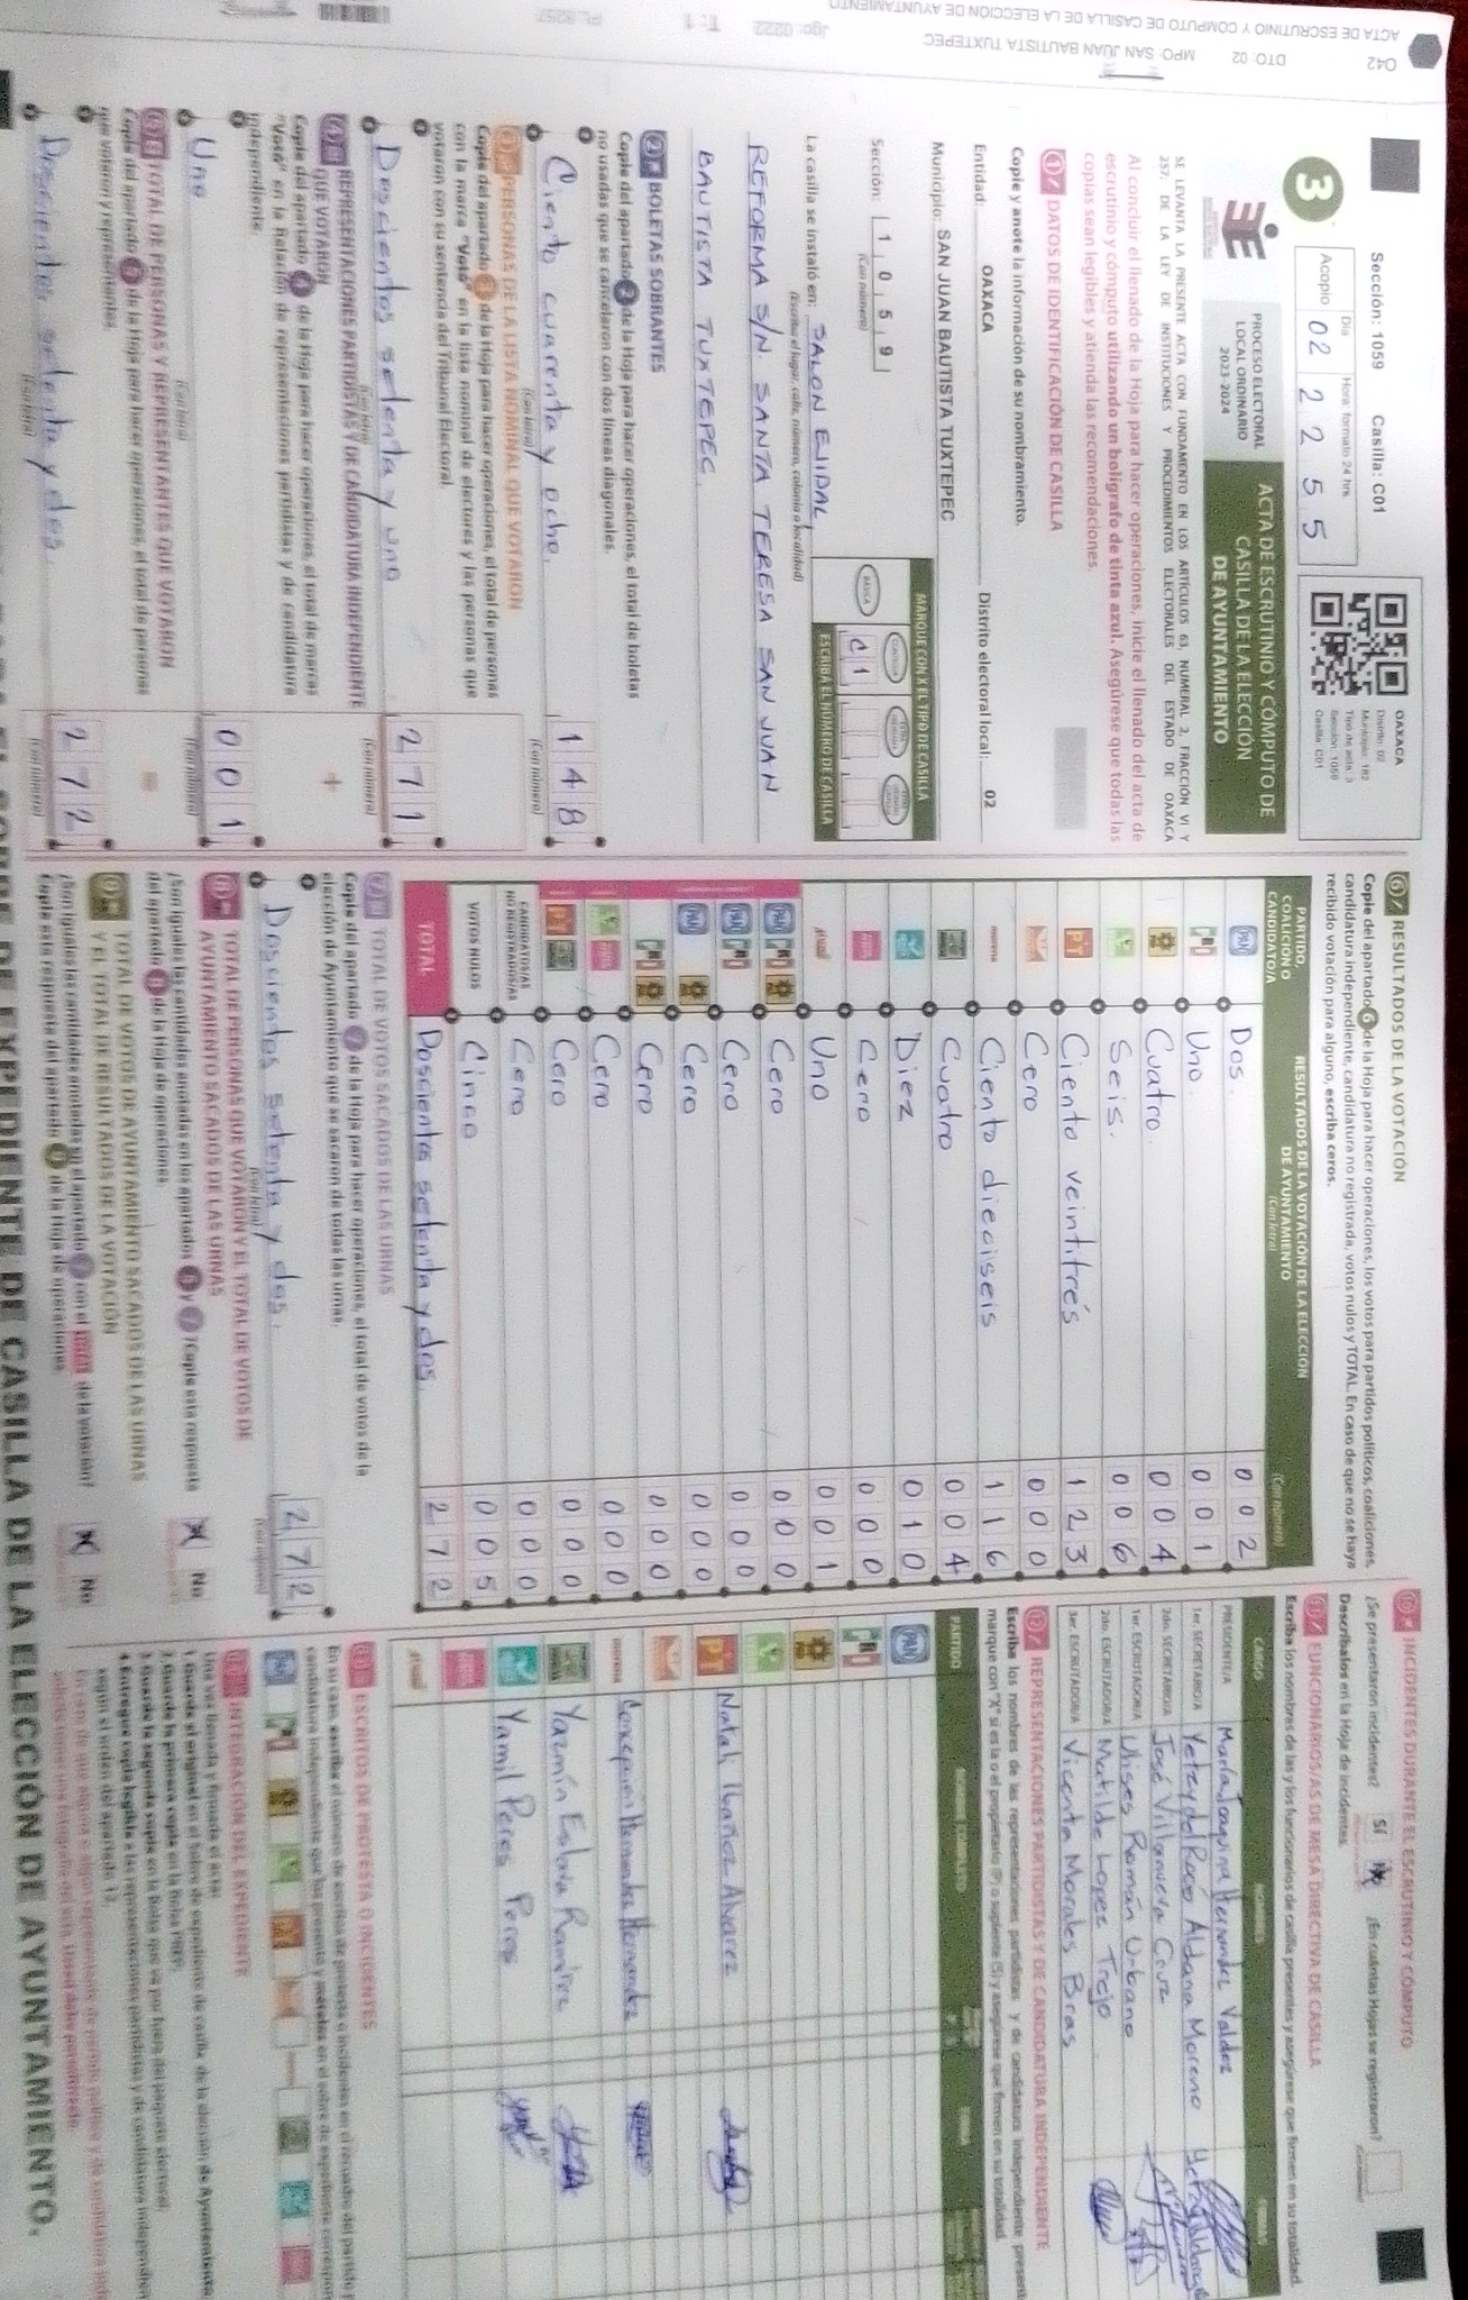 042
DTO: 02
MPO: SAN JUAN BAUTISTA TUXTEPEC
ACTA DE ESCRUTINIO Y COMPUTO DE CASILLA DE LA ELECCION DE AYUNTAMIENTO
T: 1
Sección: 1059 Casilla: C01
Día Hora: formato 24 hrs
Acopio 02 22 55
3
OAXACA
Distrito: 02
Municipio: 182
Tipo de acta: 3
Sección: 1059
Casilla: C01
PROCESO ELECTORAL
LOCAL ORDINARIO
2023-2024
ACTA DE ESCRUTINIO Y CÓMPUTO DE
CASILLA DE LA ELECCIÓN
DE AYUNTAMIENTO
SE LEVANTA LA PRESENTE ACTA CON FUNDAMENTO EN LOS ARTÍCULOS 63, NUMERAL 2, FRACCIÓN VI Y
257, DE LA LEY DE INSTITUCIONES Y PROCEDIMIENTOS ELECTORALES DEL ESTADO DE OAXACA
Al concluir el llenado de la Hoja para hacer operaciones, inicie el llenado del acta de
escrutinio y cómputo utilizando un bolígrafo de tinta azul. Asegúrese que todas las
copias sean legibles y atienda las recomendaciones.
1 DATOS DE IDENTIFICACIÓN DE CASILLA
Copie y anote la información de su nombramiento.
Entidad: OAXACA Distrito electoral local: 02
Municipio: SAN JUAN BAUTISTA TUXTEPEC
Sección: 1 0 5 9
(Con número)
MARQUE CON X EL TIPO DE CASILLA
BÁSICA
C 1
ESCRIBA EL NÚMERO DE CASILLA
La casilla se instaló en: SALON EJIDAL
(Escriba el lugar, calle, número, colonia o localidad)
REFORMA S/N. SANTA TERESA SAN JUAN
BAUTISTA TUXTEPEC.
2 BOLETAS SOBRANTES
Copie del apartado 2 de la Hoja para hacer operaciones, el total de boletas
no usadas que se cancelaron con dos líneas diagonales.
Ciento cuarenta y ocho. 1 4 8
(Con letra) (Con número)
3 PERSONAS DE LA LISTA NOMINAL QUE VOTARON
Copie del apartado 3 de la Hoja para hacer operaciones, el total de personas
con la marca "Votó" en la lista nominal de electores y las personas que
votaron con su sentencia del Tribunal Electoral.
Doscientos setenta y uno 2 7 1
(Con letra) (Con número)
4 REPRESENTACIONES PARTIDISTAS Y DE CANDIDATURA INDEPENDIENTE
QUE VOTARON
Copie del apartado 4 de la Hoja para hacer operaciones, el total de marcas
"Votó" en la Relación de representaciones partidistas y de candidatura
independiente.
+
Uno 0 0 1
(Con letra) (Con número)
5 TOTAL DE PERSONAS Y REPRESENTANTES QUE VOTARON
Copie del apartado 5 de la Hoja para hacer operaciones, el total de personas
que votaron y representantes.
=
Doscientos setenta y dos 2 7 2
(Con letra) (Con número)
6 RESULTADOS DE LA VOTACIÓN
Copie del apartado 6 de la Hoja para hacer operaciones, los votos para partidos políticos, coaliciones,
candidatura independiente, candidatura no registrada, votos nulos y TOTAL. En caso de que no se haya
recibido votación para alguno, escriba ceros.
PARTIDO,
COALICIÓN O
CANDIDATO/A
RESULTADOS DE LA VOTACIÓN DE LA ELECCIÓN
DE AYUNTAMIENTO
(Con letra) (Con número)
PAN Dos. 0 0 2
PRI Uno. 0 0 1
PRD Cuatro. 0 0 4
Seis. 0 0 6
PT Ciento veintitres 1 2 3
Cero 0 0 0
morena Ciento dieciseis 1 1 6
Cuatro 0 0 4
Diez 0 1 0
Cero 0 0 0
Uno 0 0 1
PAN PRI PRD Cero 0 0 0
PAN PRI Cero 0 0 0
PAN PRD Cero 0 0 0
PRI PRD Cero 0 0 0
Cero 0 0 0
PT Cero 0 0 0
CANDIDATOS/AS
NO REGISTRADOS/AS Cero 0 0 0
VOTOS NULOS Cinco 0 0 5
TOTAL Doscientos setenta y dos. 2 7 2
7 TOTAL DE VOTOS SACADOS DE LAS URNAS
Copie del apartado 7 de la Hoja para hacer operaciones, el total de votos de la
elección de Ayuntamiento que se sacaron de todas las urnas.
Doscientos setenta y dos. 2 7 2
(Con letra) (Con número)
8 TOTAL DE PERSONAS QUE VOTARON Y EL TOTAL DE VOTOS DE
AYUNTAMIENTO SACADOS DE LAS URNAS
¿Son iguales las cantidades anotadas en los apartados 5 y 7? Copie esta respuesta
del apartado 8 de la Hoja de operaciones.
X No
9 TOTAL DE VOTOS DE AYUNTAMIENTO SACADOS DE LAS URNAS
Y EL TOTAL DE RESULTADOS DE LA VOTACIÓN
¿Son iguales las cantidades anotadas en el apartado 7 con el TOTAL de la votación?
Copie esta respuesta del apartado 9 de la Hoja de operaciones
X No
10 INCIDENTES DURANTE EL ESCRUTINIO Y CÓMPUTO
¿Se presentaron incidentes? Sí X ¿En cuántas Hojas se registraron?
Descríbalos en la Hoja de incidentes.
11 FUNCIONARIOS/AS DE MESA DIRECTIVA DE CASILLA
Escriba los nombres de las y los funcionarios de casilla presentes y asegúrese que firmen en su totalidad.
CARGO NOMBRES FIRMAS
PRESIDENTE/A María Joaquina Hernandez Valdez
1er. SECRETARIO/A Yetzy del Rocío Aldana Moreno
2do. SECRETARIO/A José Villanueva Cruz
1er. ESCRUTADOR/A Ulises Román Urbano
2do. ESCRUTADOR/A Matilde Lopez Trejo
3er. ESCRUTADOR/A Vicenta Morales Bras
12 REPRESENTACIONES PARTIDISTAS Y DE CANDIDATURA INDEPENDIENTE
Escriba los nombres de las representaciones partidistas y de candidatura independiente present
marque con "X" si es la o el propietario (P) o suplente (S) y asegúrese que firmen en su totalidad.
PARTIDO NOMBRE COMPLETO FIRMA
PAN
PRI
PRD
PT Natali Ibañez Alvarez
morena Concepcion Hernandez Hernandez
Yazmín Eslava Ramírez
Yamil Peres Peres
13 ESCRITOS DE PROTESTA O INCIDENTES
En su caso, escriba el número de escritos de protesta o incidentes en el recuadro del partido
candidatura independiente que los presentó y métalos en el sobre de expediente
14 INTEGRACIÓN DEL EXPEDIENTE
Una vez llenada y firmada el acta:
1. Guarde el original en el Sobre de expediente de casilla de la elección de Ayuntamiento
2. Guarde la primera copia en la Bolsa PREP.
3. Guarde la segunda copia en la Bolsa que va por fuera del paquete electoral.
4. Entregue copia legible a las representaciones partidistas y de candidatura
según el orden del apartado 12.
EXPEDIENTE DE CASILLA DE LA ELECCIÓN DE AYUNTAMIENTO.